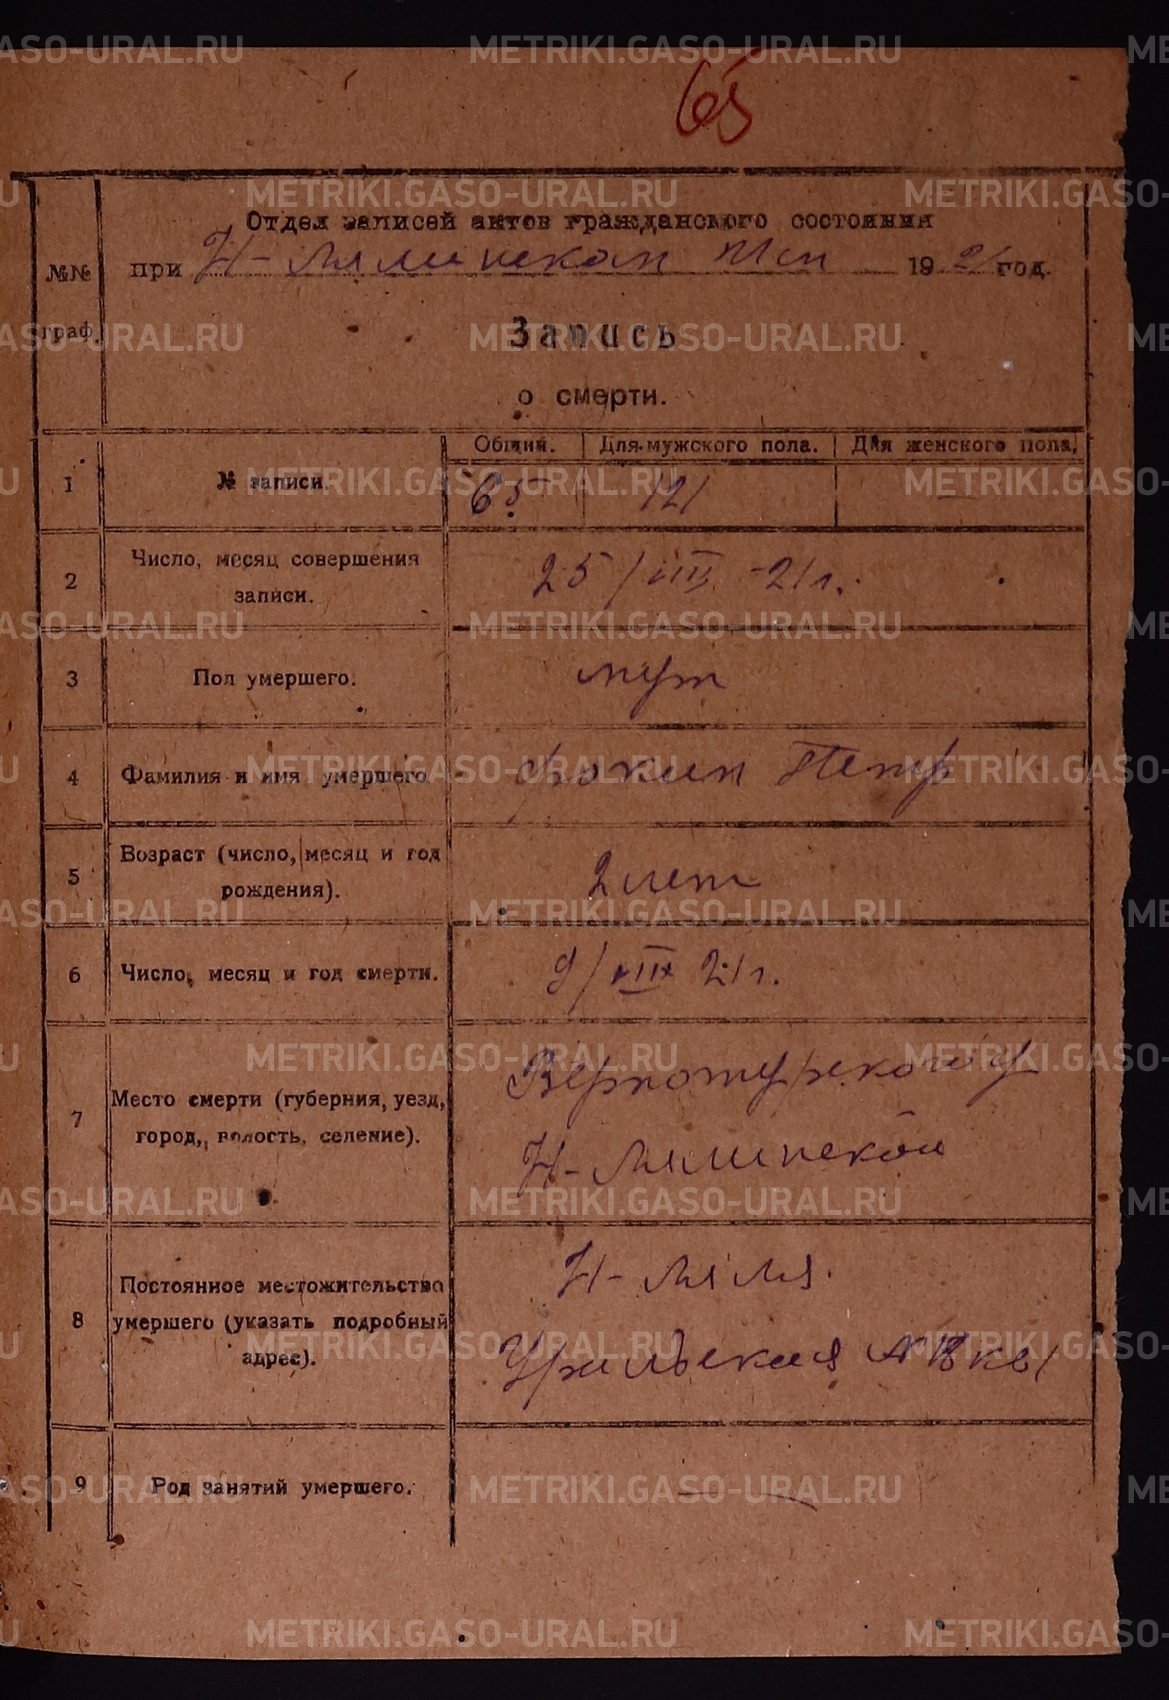 65
Отдел записей актов гражданского состояния
при Н-Лялинском 1921 год.
№№ граф.
Запись
о смерти.
Общий. Для мужского пола. Для женского пола.
1 № записи. 65 121 —
2 Число, месяц совершения записи. 25/VIII -21 г.
3 Пол умершего. муж
4 Фамилия и имя умершего Фокин Петр
5 Возраст (число, месяц и год рождения). 2 лет
6 Число, месяц и год смерти. 9/VIII 21 г.
7 Место смерти (губерния, уезд, город, волость, селение). Верхотурского у
Н-Лялинской
8 Постоянное местожительство умершего (указать подробный адрес). Н-Ляля.
Уральская
9 Род занятий умершего. —
METRIKI.GASO-URAL.RU